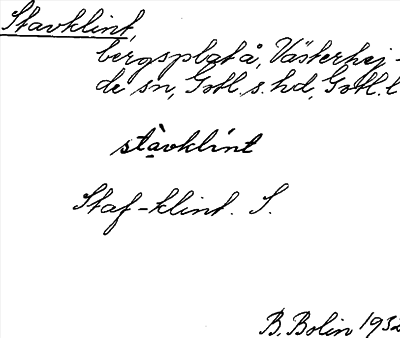 Stavklint,
bergsplatå, Västerhej-
de sn, Gotl. s. hd, Gotl. l
stàvklínt
Staf-klint. S.
B. Bolin 1932